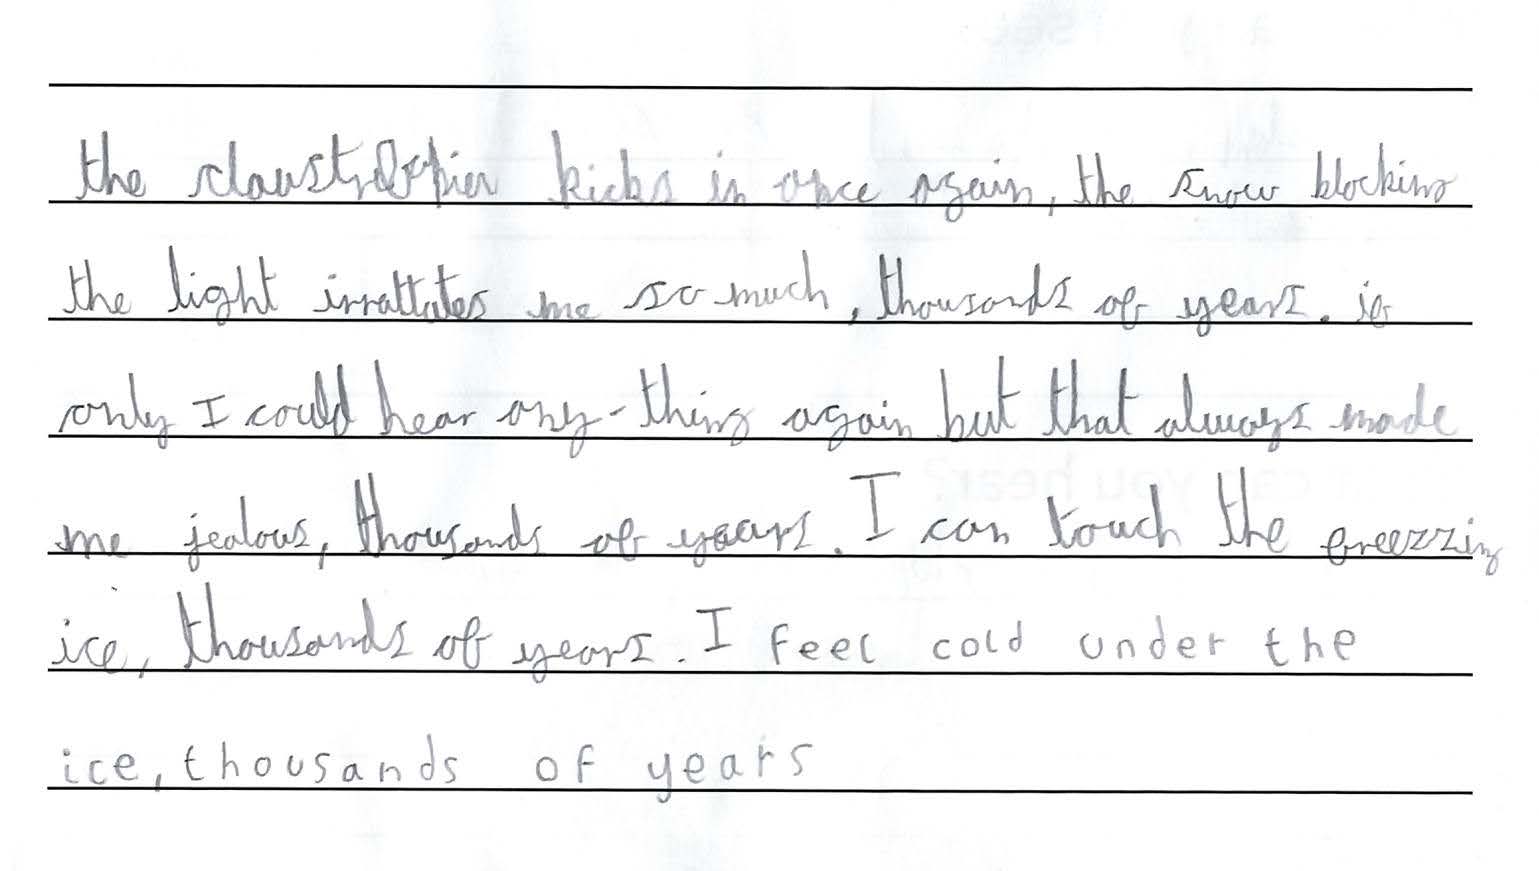 the claustrophier kicks in once again, the snow blocking
the light irrattates me so much, thousands of years. if
only I could hear any-thing again but that always made
me jealous, thousands of years. I can touch the freezzing
ice, thousands of years. I feel cold under the
ice, thousands of years